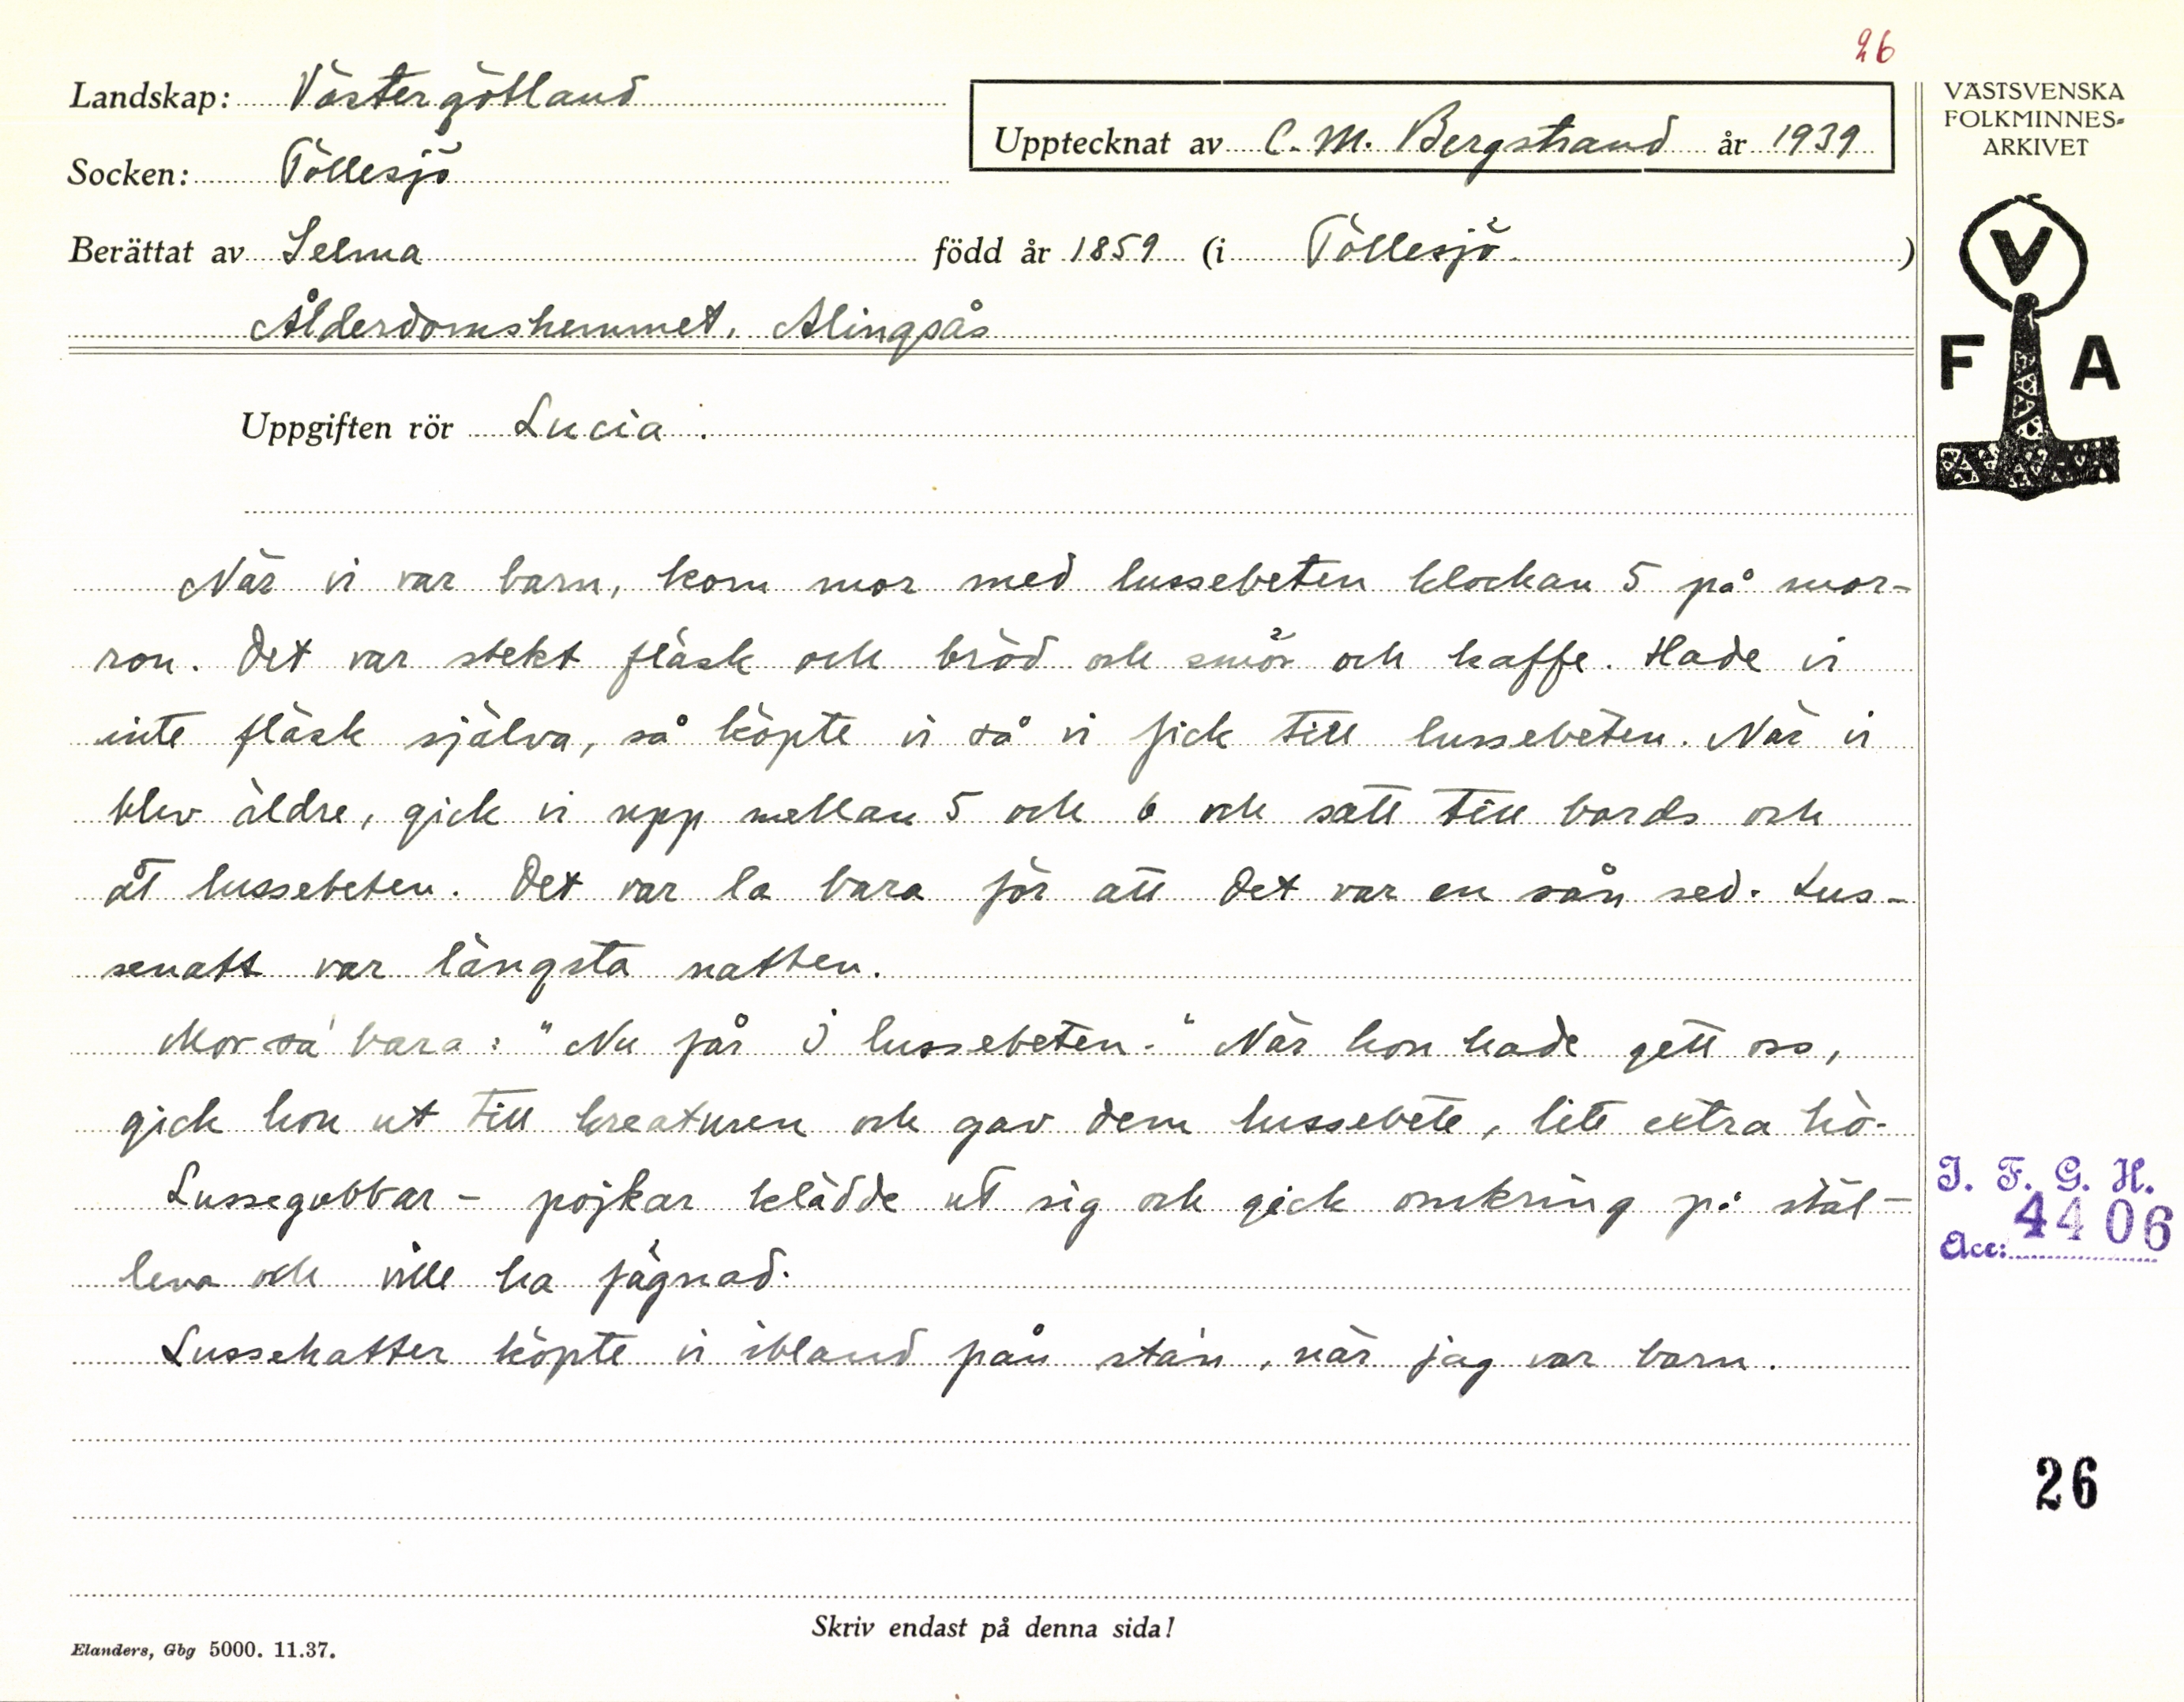 26
Landskap: Västergötland
Upptecknat av C. M. Bergstrand år 1939
VÄSTSVENSKA
FOLKMINNES-
ARKIVET
Socken: Töllesjö
Berättat av Selma född år 1859 (i Töllesjö.)
Ålderdomshemmet, Alingsås
V
F A
Uppgiften rör Lucia.
När vi var barn, kom mor med lussebeten klockan 5 på mor-
ron. Det var stekt fläsk och bröd och smör och kaffe. Hade vi
inte fläsk själva, så köpte vi så vi fick till lussebeten. När vi
blev äldre, gick vi upp mellan 5 och 6 och satt till bords och
åt lussebeten. Det var la bara för att det var en sån sed. Lus-
senatt var längsta natten.
Mor sa' bara: "Nu får i lussebeten." När hon hade gett oss,
gick hon ut till kreaturen och gav dem lussebete, lite extra hö.
Lussegubbar - pojkar klädde ut sig och gick omkring på stäl-
lena och ville ha fägnad.
Lussekatter köpte vi ibland på'n stá'n, när jag var barn.
I. F. G. H.
Acc: 4406
26
Skriv endast på denna sida!
Elanders, Gbg 5000. 11.37.